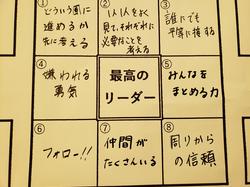 ①
どういう風に
進めるか
先に考える
②
1人1人をよく
見て、それぞれに
必要なことを
考える
③
誰にでも
平等に接する
④
嫌われる
勇気
最高の
リーダー
⑤
みんなを
まとめる力
⑥
フォロー!!
⑦
仲間が
たくさんいる
⑧
周りから
の信頼